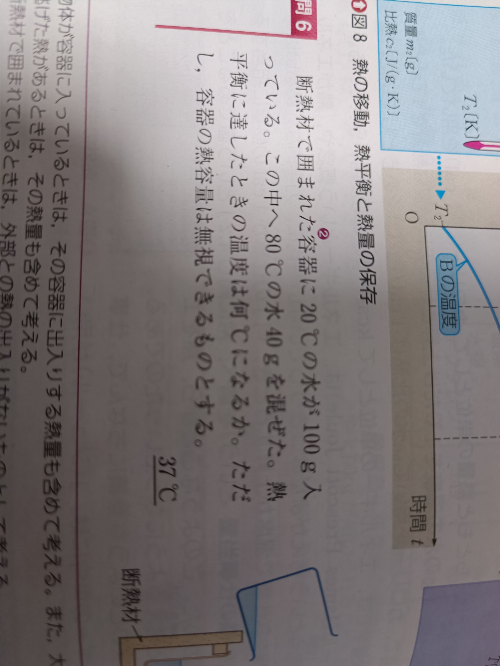 T₂〔K〕
質量 m₂〔g〕
比熱 c₂〔J/(g・K)〕
T₂
O
Bの温度
時間 t
図8 熱の移動，熱平衡と熱量の保存
問6
断熱材で囲まれた容器に20℃の水が100g入
❷
っている。この中へ80℃の水40gを混ぜた。熱
平衡に達したときの温度は何℃になるか。ただ
し，容器の熱容量は無視できるものとする。
37℃
断熱材
物体が容器に入っているときは，その容器に出入りする熱量も含めて考える。また，大
逃げた熱があるときは，その熱量も含めて考える。
断熱材で囲まれているときは，外部との熱の出入りがないものとして考える